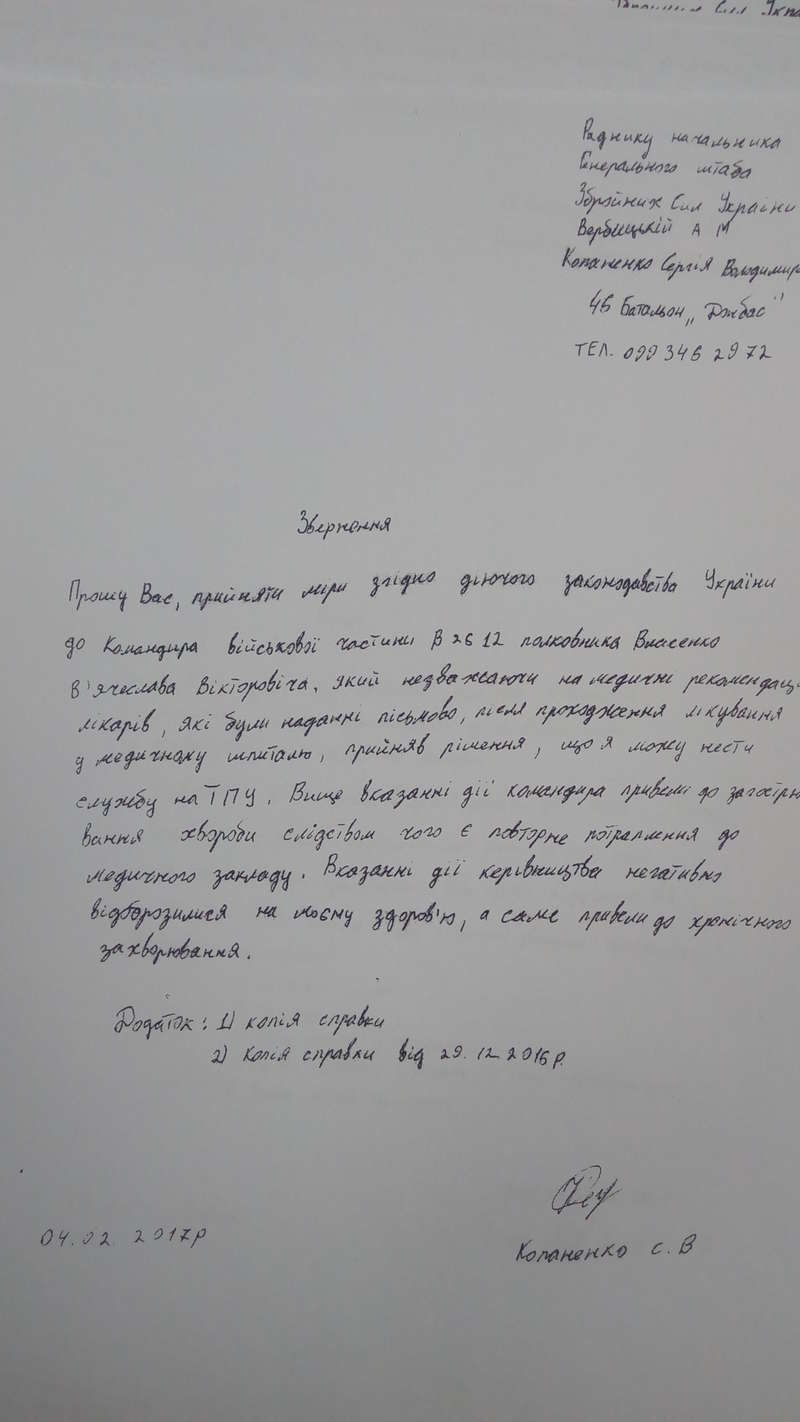 Сил Укра
Раднику начальника
Генерального штаба
Збройних Сил України
Вербицькій А М
Копаненко Сергія Володимир
46 Батальон „Донбас"
ТЕЛ. 099 346 29 72
Звернення
Прошу Вас, прийняти міри згідно діючого законодавства України
до Командира військової частини В 2612 полковника Власенко
В'ячеслава Вікторовіча, який незважаючи на медичні рекомендаці
лікарів, які були наданні пісьмово, після проходження лікування
у медичному шпиталю, прийняв рішення, що я можу нести
службу на ТПУ. Вище вказанні дії командира привели до загостре
вання хвороби слідством чого є повторне потраплення до
медичного закладу. Вказанні дії керівництва негативно
відборозилися на моєму здоров'ю, а саме привели до хронічного
захворювання.
Додаток: 1) копія справки
2) копія справки від 29.12.2016р.
04.02.2017р
Копаненко С.В